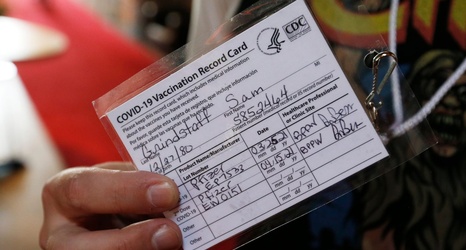 COVID-19 Vaccination Record Card
CDC
Please keep this record card, which includes medical information
about the vaccines you have received.
Por favor, guarde esta tarjeta de registro, que incluye información
médica sobre las vacunas que ha recibido.
Sam
Last Name First Name MI
12/27/80 5852464
Date of birth Patient number (medical record or IIS record number)
Vaccine Product Name/Manufacturer Date Healthcare Professional
Lot Number or Clinic Site
COVID-19 Pfizer 03/25/21 BPPW
EP7533 mm dd yy
Pfizer 04/15/21 BPPW
COVID-19 EW0151 mm dd yy
mm dd yy
mm dd yy